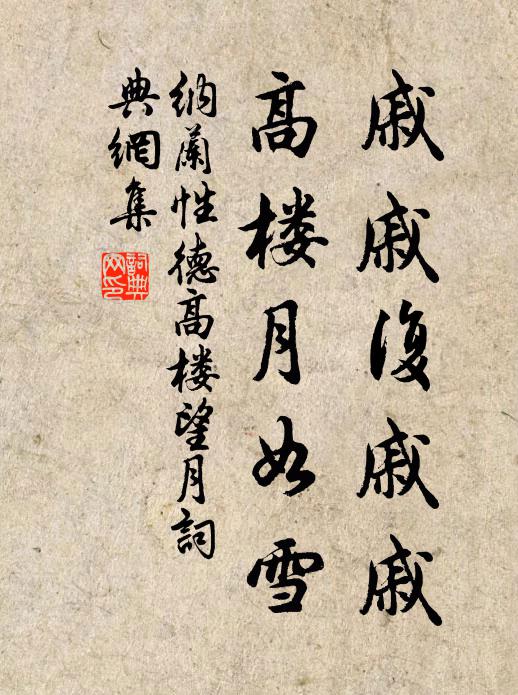 戚戚復戚戚
高楼月如雪
納蘭性德高楼望月詞
典網集
詞典网印